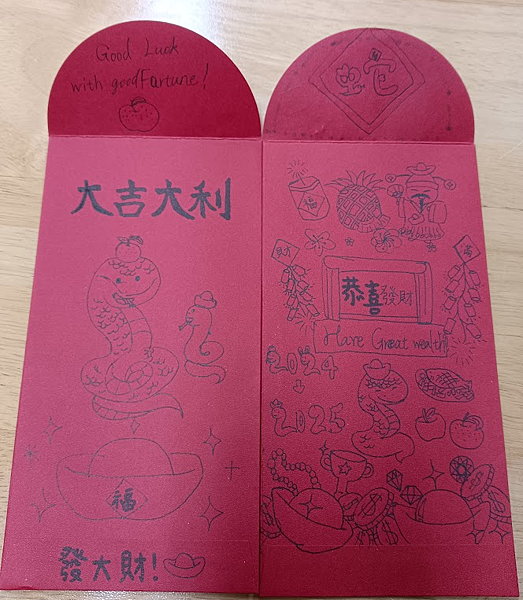 Good Luck
with good Fortune!
大吉大利
福
發大財!
蛇
福
恭喜發財
財
Have Great wealth
2024
2025